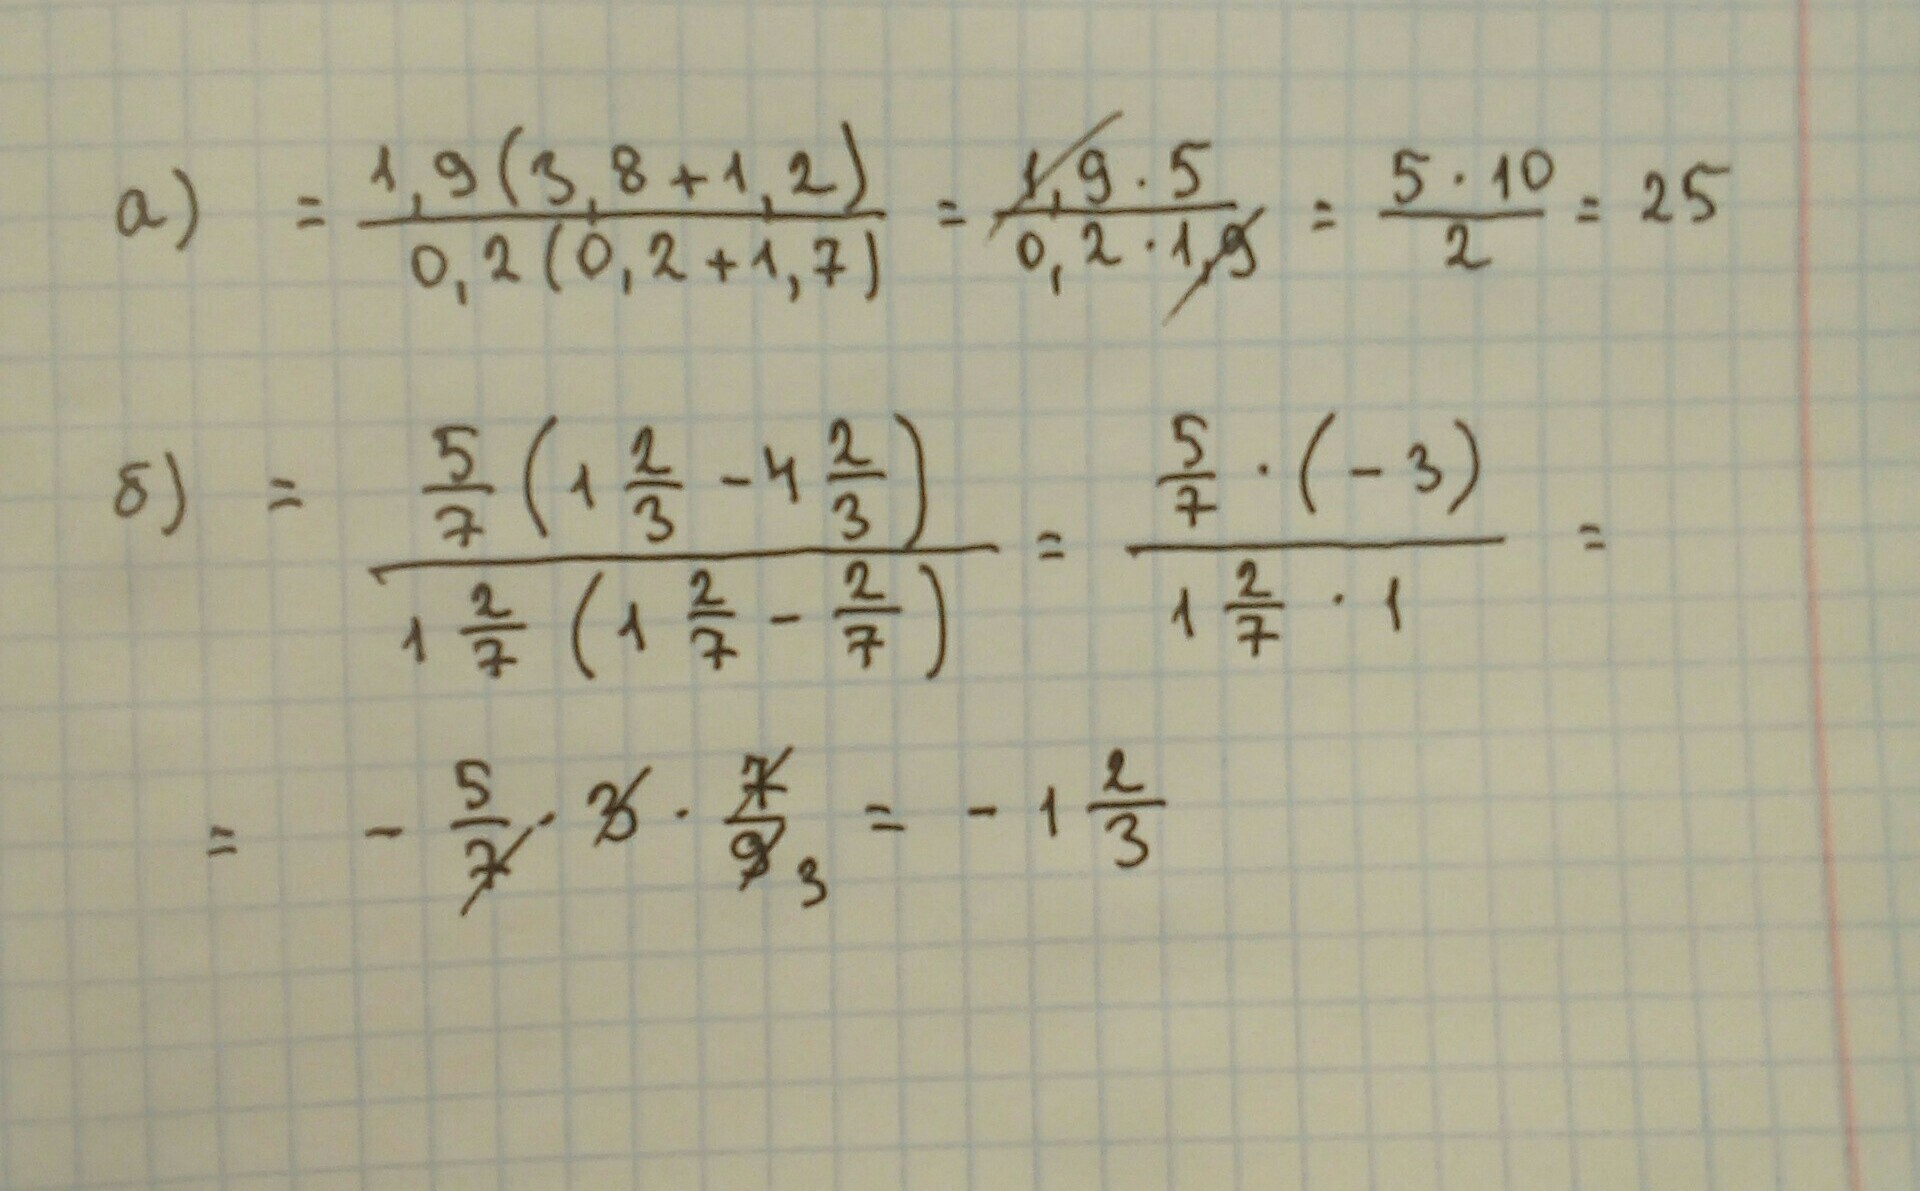 а) = 1,9(3,8+1,2) / 0,2(0,2+1,7) = 1,9·5 / 0,2·1,9 = 5·10 / 2 = 25
б) = 5/7 (1 2/3 - 4 2/3) / 1 2/7 (1 2/7 - 2/7) = 5/7 · (-3) / 1 2/7 · 1 =
= - 5/7 · 3 · 7/9 3 = - 1 2/3